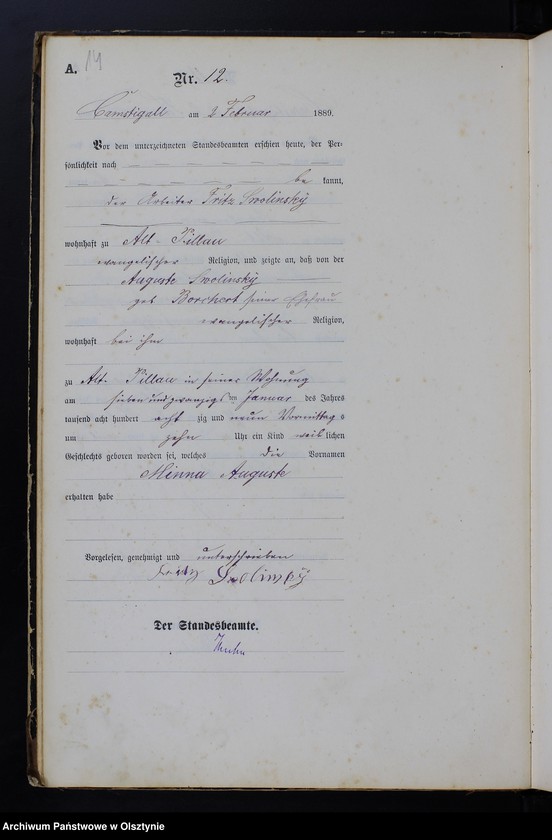 A. 14
Nr. 12.
Camstigall am 2 Februar 1889.
Vor dem unterzeichneten Standesbeamten erschien heute, der Per-
sönlichkeit nach
be kannt,
der Arbeiter Fritz Swolinsky
wohnhaft zu Alt-Pillau
evangelischer Religion, und zeigte an, daß von der
Auguste Swolinsky
geb Borchert seiner Ehefrau
evangelischer Religion,
wohnhaft bei ihm
zu Alt-Pillau in seiner Wohnung
am sieben und zwanzigsten Januar des Jahres
tausend acht hundert acht zig und neun Vormittags
um zehn Uhr ein Kind weiblichen
Geschlechts geboren worden sei, welches die Vornamen
Minna Auguste
erhalten habe
Vorgelesen, genehmigt und unterschrieben
Fritz Swolinsky
Der Standesbeamte.
Archiwum Państwowe w Olsztynie